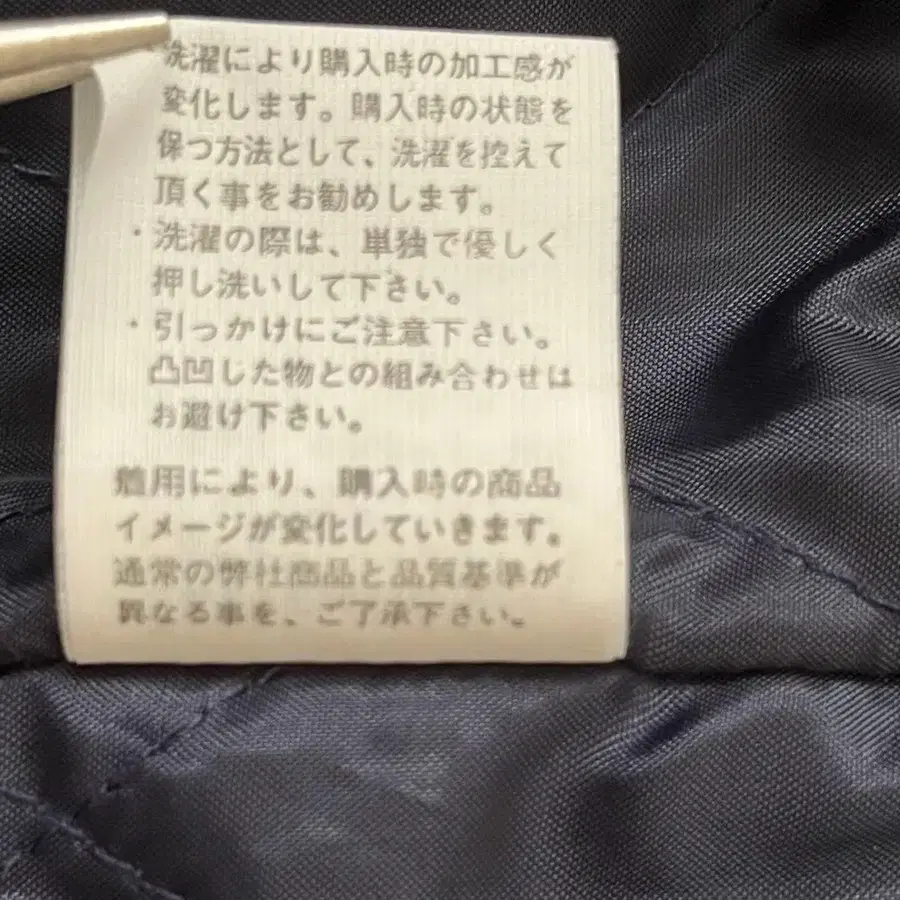 洗濯により購入時の加工感が
変化します。購入時の状態を
保つ方法として、洗濯を控えて
頂く事をお勧めします。
・洗濯の際は、単独で優しく
押し洗いして下さい。
・引っかけにご注意下さい。
凸凹じた物との組み合わせは
お避け下さい。
着用により、購入時の商品
イメージが変化していきます。
通常の弊社商品と品質基準が
異なる事を、ご了承下さい。